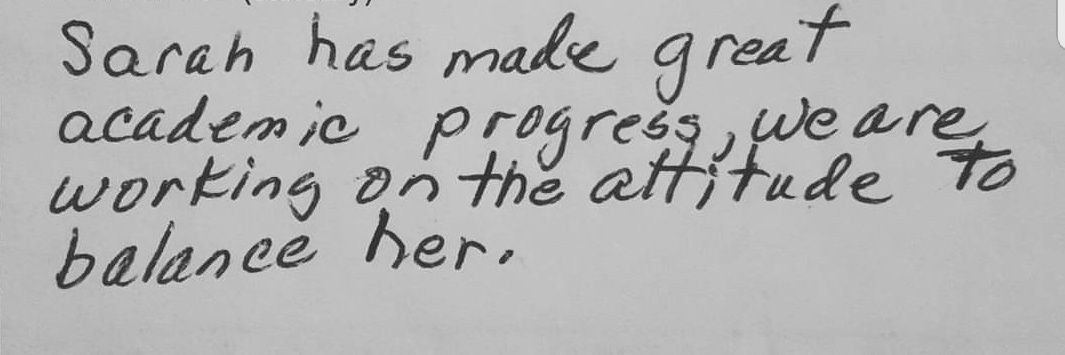 Sarah has made great
academic progress, we are
working on the attitude to
balance her.